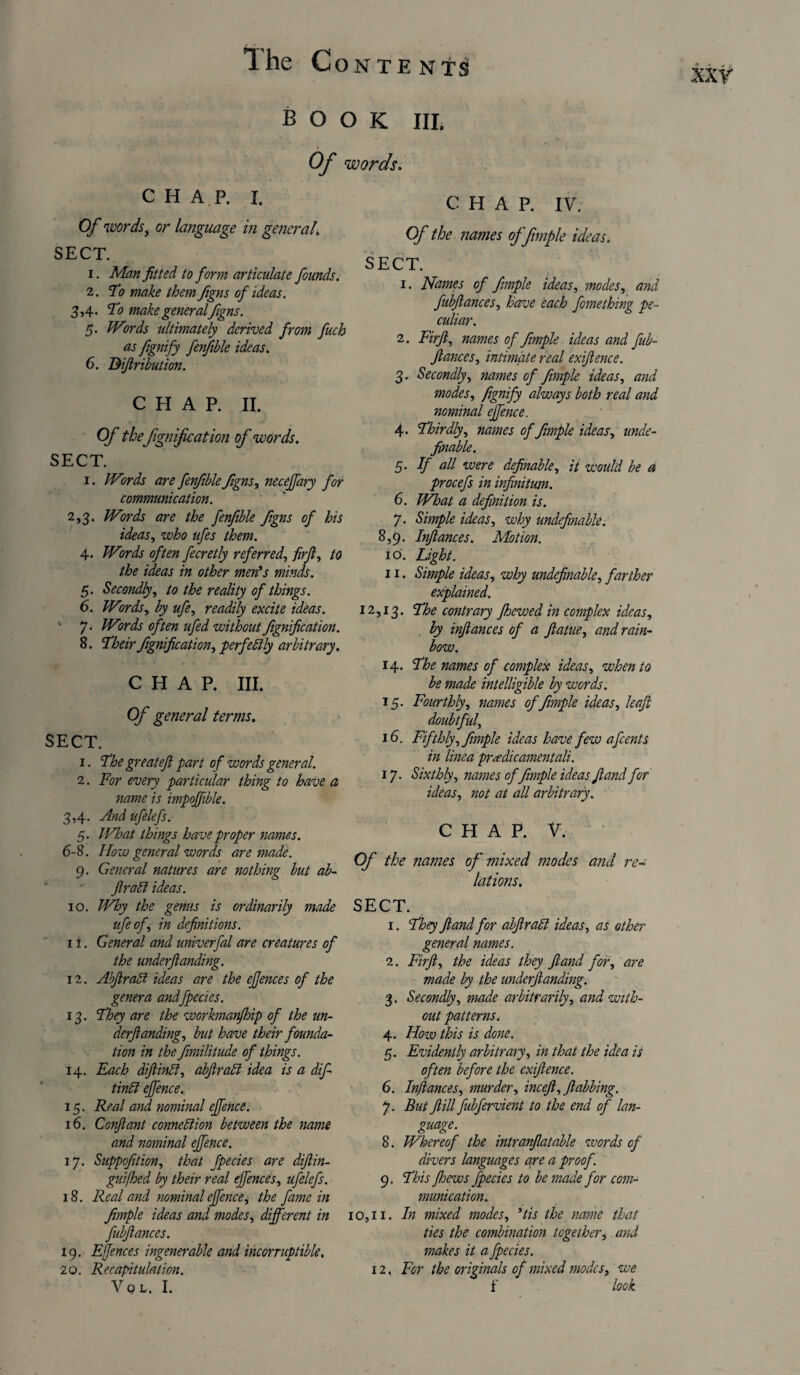 The CONTENTS
xxv
BOOK III.
Of words.
CHAP. I.
Of words, or language in general.
SECT.
1. Man fitted to form articulate ſounds.
2. To make them ſigns of ideas.
3,4. To make general ſigns.
5. Words ultimately derived from ſuch
as ſignify ſenſible ideas.
6. Diſtribution.
CHAP. II.
Of the ſignification of words.
SECT.
1. Words are ſenſible ſigns, neceſſary for
communication.
2,3. Words are the ſenſible ſigns of his
ideas, who uſes them.
4. Words often ſecretly referred, firſt, to
the ideas in other men's minds.
5. Secondly, to the reality of things.
6. Words, by uſe, readily excite ideas.
7. Words often uſed without ſignification.
8. Their ſignification, perfectly arbitrary.
CHAP. III.
Of general terms.
SECT.
1. The greateſt part of words general.
2. For every particular thing to have a
name is impoſſible.
3,4. And uſeleſs.
5. What things have proper names.
6-8. How general words are made.
9. General natures are nothing but ab-
ſtract ideas.
10. Why the genus is ordinarily made
uſe of, in definitions.
11. General and univerſal are creatures of
the underſtanding.
12. Abſtract ideas are the eſſences of the
genera and ſpecies.
13. They are the workmanſhip of the un-
derſtanding, but have their founda-
tion in the ſimilitude of things.
14. Each diſtinct, abſtract idea is a diſ-
tinct eſſence.
15. Real and nominal eſſence.
16. Conſtant connection between the name
and nominal eſſence.
17. Suppoſition, that ſpecies are diſtin-
guiſhed by their real eſſences, uſeleſs.
18. Real and nominal eſſence, the ſame in
ſimple ideas and modes, different in
ſubſtances.
19. Eſſences ingenerable and incorruptible.
20. Recapitulation.
VOL. I.
CHAP. IV.
Of the names of ſimple ideas.
SECT.
1. Names of ſimple ideas, modes, and
ſubſtances, have each ſomething pe-
culiar.
2. Firſt, names of ſimple ideas and ſub-
ſtances, intimate real exiſtence.
3. Secondly, names of ſimple ideas, and
modes, ſignify always both real and
nominal eſſence.
4. Thirdly, names of ſimple ideas, unde-
finable.
5. If all were definable, it would be a
proceſs in infinitum.
6. What a definition is.
7. Simple ideas, why undefinable.
8,9. Inſtances. Motion.
10. Light.
11. Simple ideas, why undefinable, farther
explained.
12,13. The contrary ſhewed in complex ideas,
by inſtances of a ſtatue, and rain-
bow.
14. The names of complex ideas, when to
be made intelligible by words.
15. Fourthly, names of ſimple ideas, leaſt
doubtful,
16. Fifthly, ſimple ideas have few aſcents
in linea prædicamentali.
17. Sixthly, names of ſimple ideas ſtand for
ideas, not at all arbitrary.
CHAP. V.
Of the names of mixed modes and re-
lations.
SECT.
1. They ſtand for abſtract ideas, as other
general names.
2. Firſt, the ideas they ſtand for, are
made by the underſtanding.
3. Secondly, made arbitrarily, and with-
out patterns.
4. How this is done.
5. Evidently arbitrary, in that the idea is
often before the exiſtence.
6. Inſtances, murder, inceſt, ſtabbing.
7. But ſtill ſubſervient to the end of lan-
guage.
8. Whereof the intranſlatable words of
divers languages are a proof.
9. This ſhews ſpecies to be made for com-
munication.
10,11. In mixed modes, 'tis the name that
ties the combination together, and
makes it a ſpecies.
12. For the originals of mixed modes, we
f look